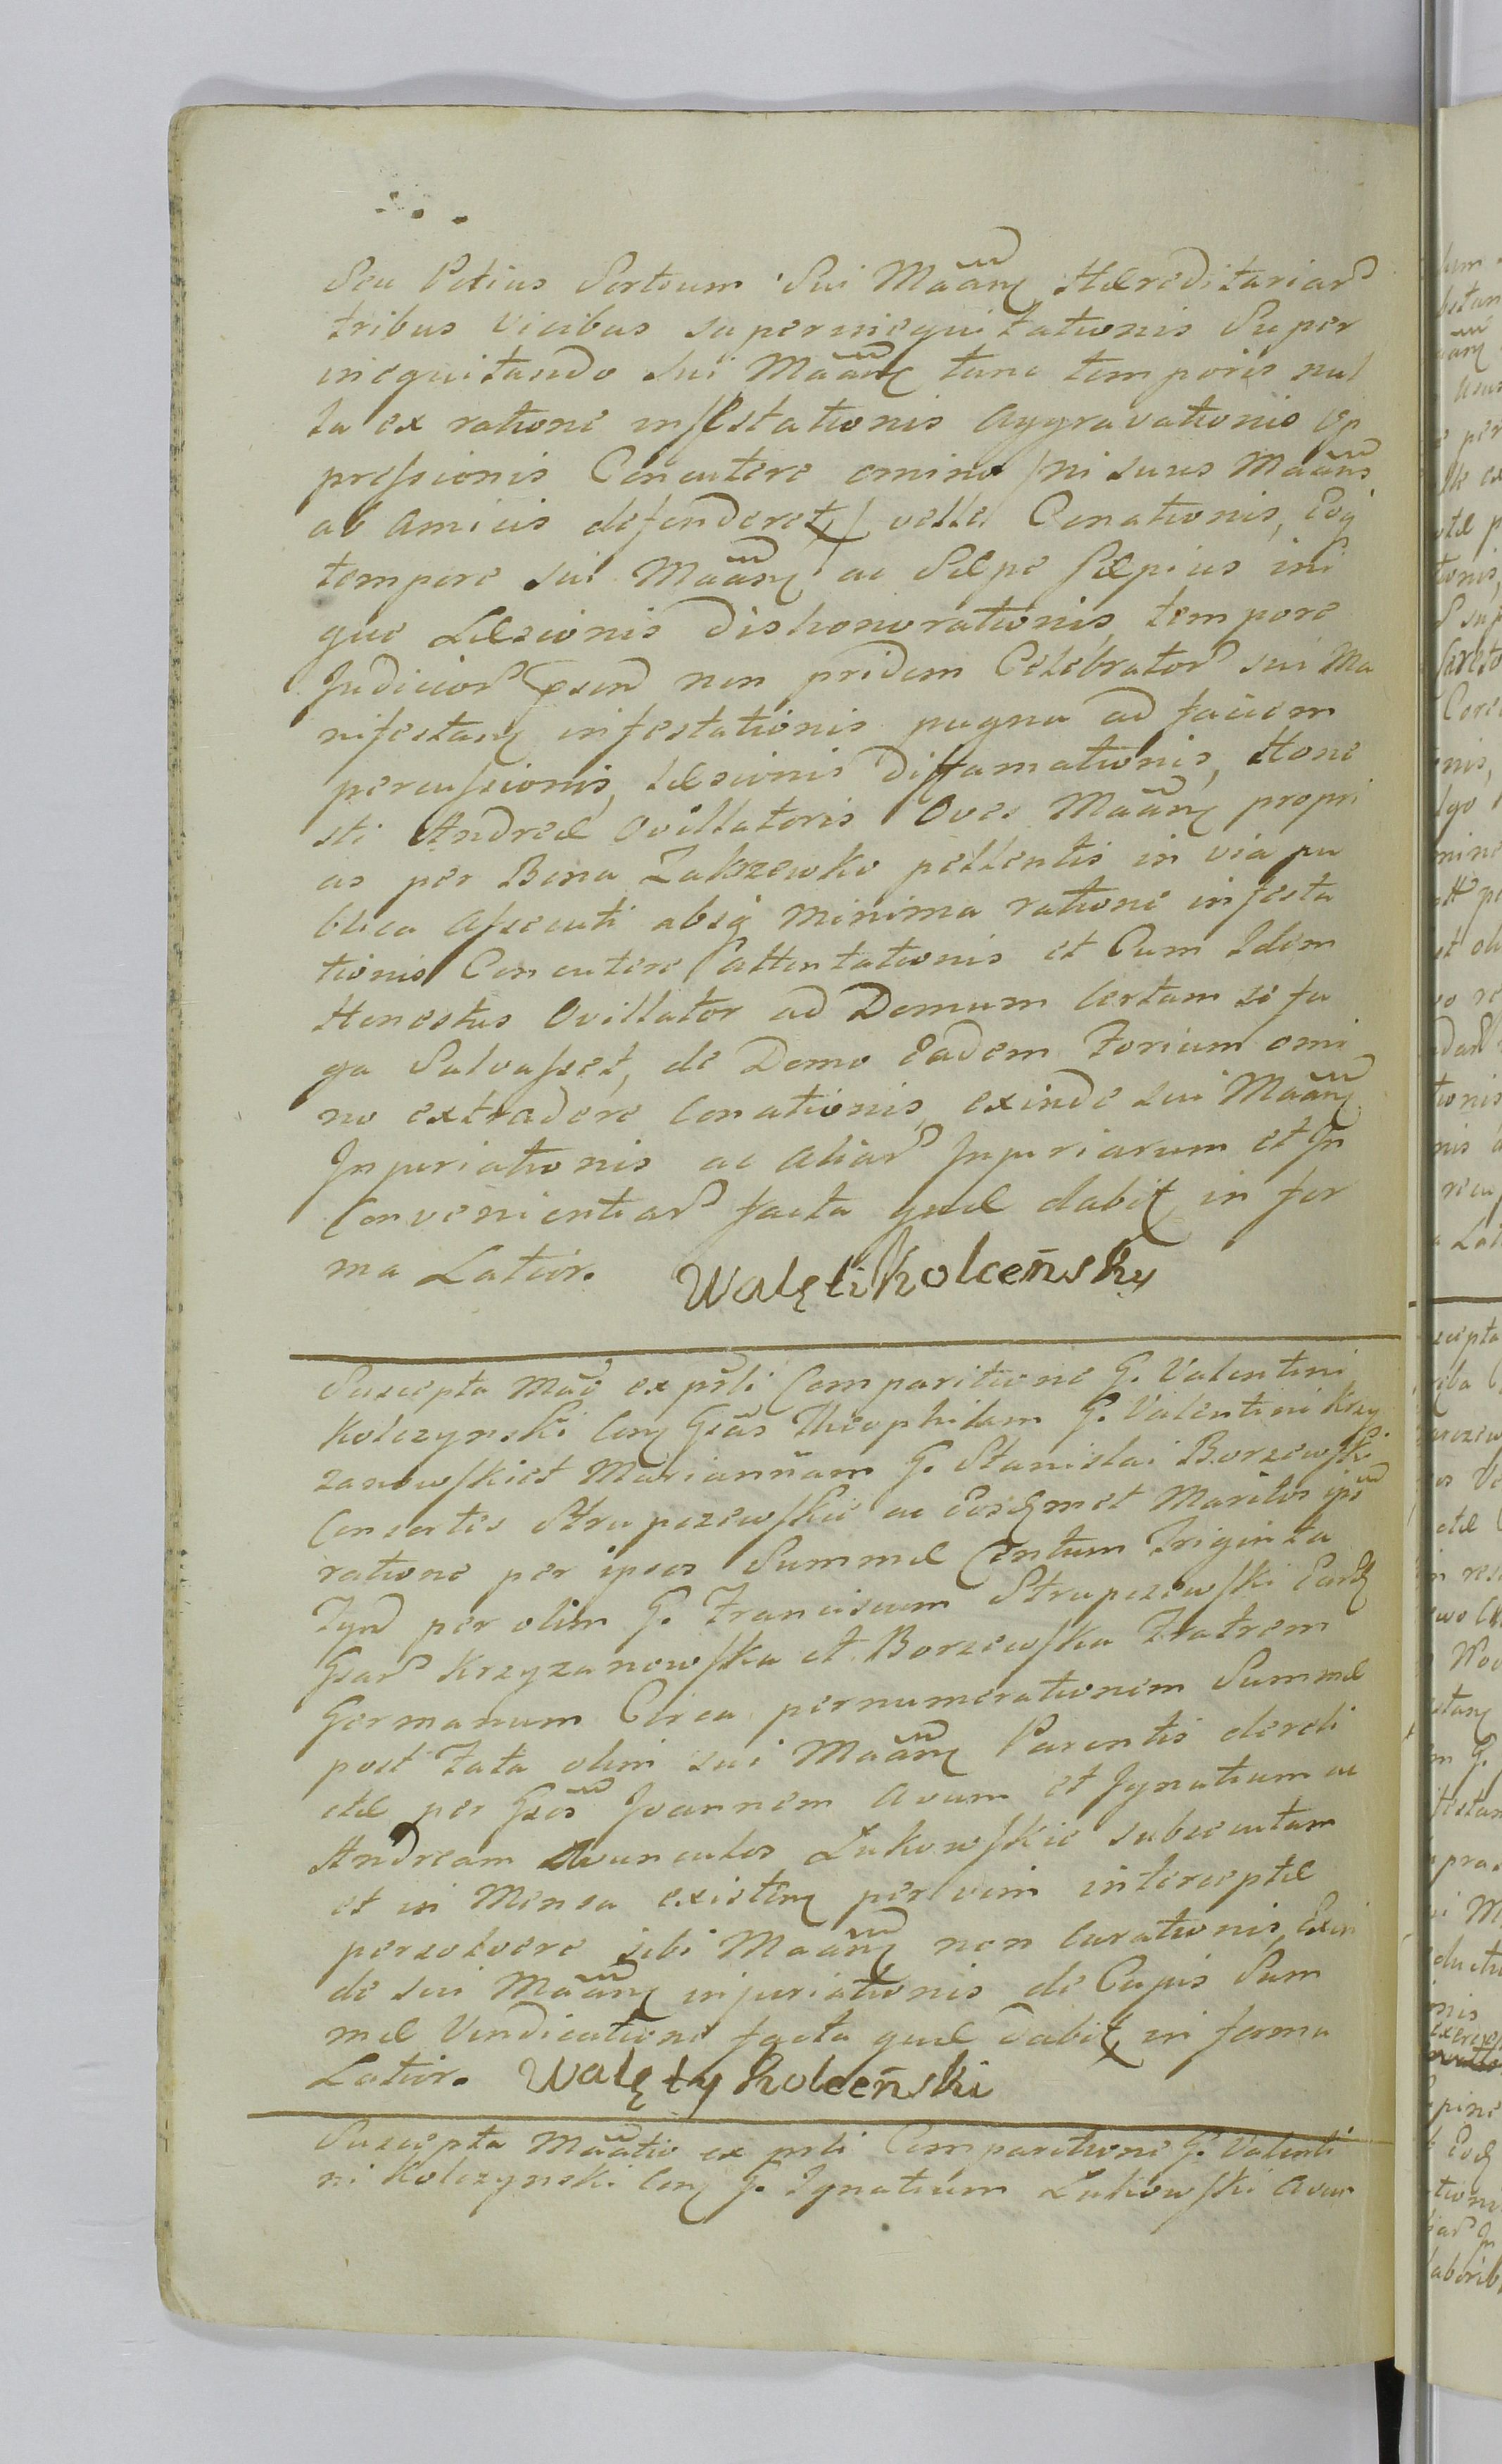 Seu Potius Sortium Sui Maãñ Hæreditariar
tribus vicibus superinequitationis Super
inequitando sui Maãñ tunc temporis nul
la ex ratione infestationis Aggravationis op
pressionis Concutere omino /ni suus Maãñs
ab Amicis defenderet/ velle Conationis, Eoq
tempore sui Maãñ ac Sæpe sæpius ini
quo Læsionis dishonorationis, tempore
Judicior non pridem Celebrator sui Ma
nifestañ infestationis pugna ad faciem
percussionis, Læsionis Diffamationis, Hone
sti Andreæ Ovillatoris Oves Maãñ propri
as per Bona Zakrzewko pellentis in via pu
blica Assecuti absq minima ratione infesta
tionis Concutere attentationis et Cum Idem
Honestus Ovillator ad Domum Certam se fu
ga Salvasset, de Domo Eadem Forium omi
no extradere Conationis, exinde sui Maãñ
Injuriationis ac Aliar Injuriarum et In
Convenientiar facta quæ dabit in for
ma Latior. Walęti Kolceński
Suscepta Mãõ ex prli Comparitione G. Valentini
Kolczynski Con Gsãs Theophilam G. Valentini Krzy
zanowski et Mariannam G. Stanislai Borzewski
Consortes Strupczewskie ac Eosqmet Maritos ips
ratione per ipsos Summæ Centum Triginta
Tyn per olim G. Franciscum Strupczewski Earq
Gsar Krzyzanowska et Borzewska Fratrem
Germanum Circa pernumerationem Summæ
post Fata olim sui Maãñ Parentis dereli
ctæ per Gsõs Joannem Avum et Ignatium ac
Andream Avunculos Łukowskie subsecutam
et in Mensa existen per vim interceptæ
persolvere sibi Maãñ non Curationis, Exin
de sui Maãñ injuriationis de Cujus Sum
mæ Vindicatione facta quæ dabit in forma
Latior. Walęty Kolceński
Suscepta Maãtio ex prli Comparitione G. Valenti
ni Kolczynski Con G. Ignatium Łukowski Avun